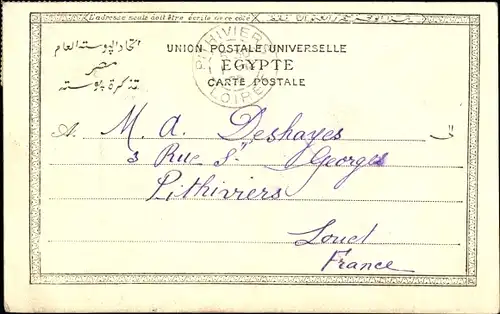 L'adresse seule doit être écrite de ce côté
اتحاد البوسته العام
مصر
تذكرة بوسته
UNION POSTALE UNIVERSELLE
EGYPTE
CARTE POSTALE
PITHIVIERS
LOIRET
A. M. A. Deshayes الى
3 Rue St Georges
Pithiviers
Loiret
France